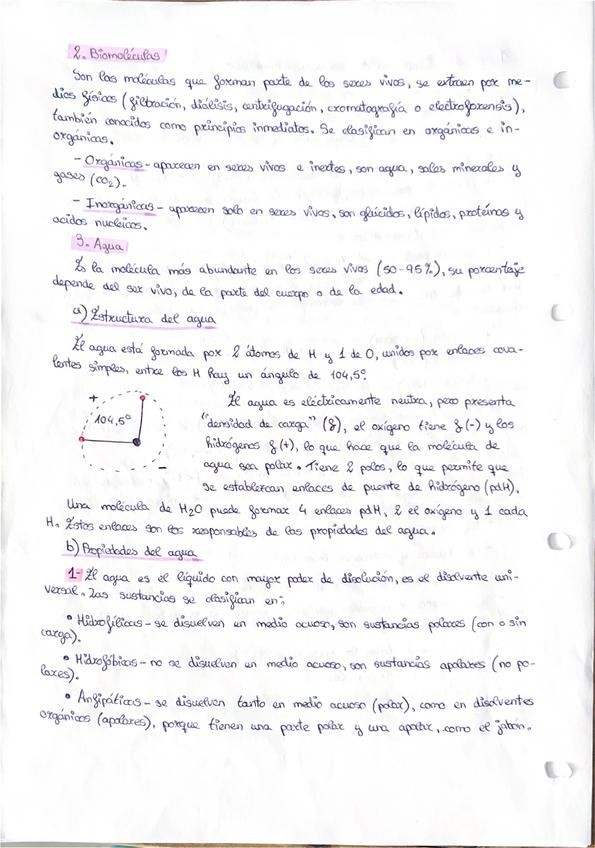 2. Biomoléculas
Son las moléculas que forman parte de los seres vivos, se extraen por me-
dios físicos (filtración, diálisis, centrifugación, cromatografía o electroforensis),
también conocidos como principios inmediatos. Se clasifican en orgánicas e in-
orgánicas.
- Orgánicas - aparecen en seres vivos e inertes, son agua, sales minerales y
gases (CO₂).
- Inorgánicas - aparecen solo en seres vivos, son glúcidos, lípidos, proteínas y
acidos nucleicos.
3. Agua
Es la molécula más abundante en los seres vivos (50-95%), su porcentaje
depende del ser vivo, de la parte del cuerpo o de la edad.
a) Estructura del agua
El agua está formada por 2 átomos de H y 1 de O, unidos por enlaces cova-
lentes simples, entre los H hay un ángulo de 104,5º
+
104,5º
-
El agua es eléctricamente neutra, pero presenta
"densidad de carga" (δ), el oxígeno tiene δ(-) y los
hidrógenos δ(+), lo que hace que la molécula de
agua sea polar. Tiene 2 polos, lo que permite que
se establezcan enlaces de puente de hidrógeno (pdH).
Una molécula de H₂O puede formar 4 enlaces pdH, 2 el oxígeno y 1 cada
H. Estos enlaces son los responsables de las propiedades del agua.
b) Propiedades del agua
1- El agua es el líquido con mayor poder de disolución, es el disolvente uni-
versal. Las sustancias se clasifican en:
• Hidrofílicas - se disuelven en medio acuoso, son sustancias polares (con o sin
carga).
• Hidrofóbicas - no se disuelven en medio acuoso, son sustancias apolares (no po-
lares).
• Anfipáticas - se disuelven tanto en medio acuoso (polar), como en disolventes
orgánicos (apolares), porque tienen una parte polar y una apolar, como el jabón.